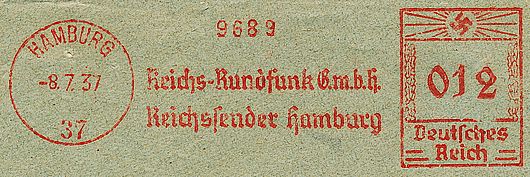 HAMBURG
-8.7.37
37
9689
Reichs-Rundfunk G.m.b.H.
Reichssender Hamburg
012
Deutsches
Reich